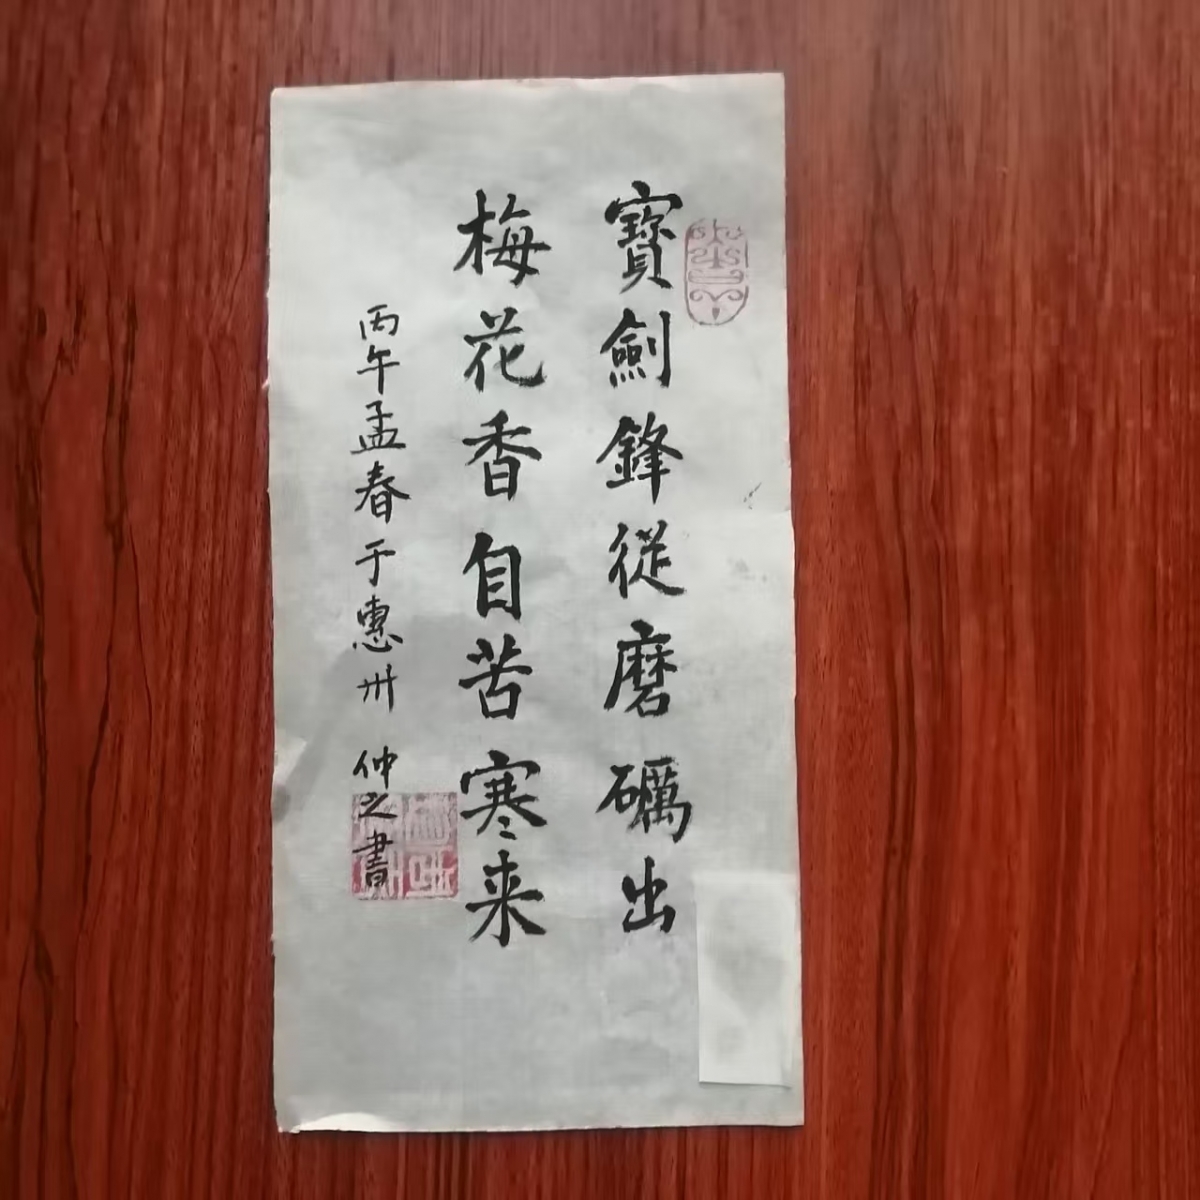 寶劍鋒從磨礪出
梅花香自苦寒来
丙午孟春于惠州 仲之書